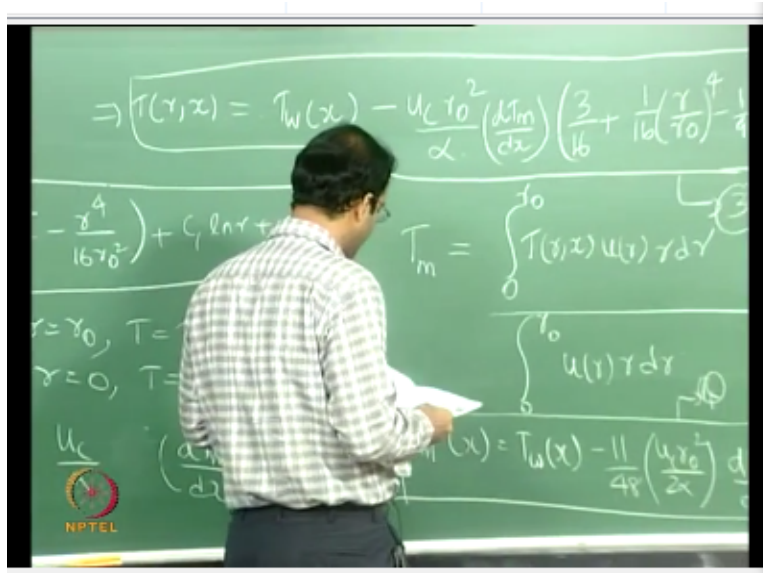 ⇒ T(r,x) = T_w(x) − u_c r_0^2/α (dT_m/dx) (3/16 + 1/16 (r/r_0)^4 − 1/4
− r^4/16r_0^2) + C_1 ln r +
T_m = ∫_0^{r_0} T(r,x) u(r) r dr
3
∫_0^{r_0} u(r) r dr
r = r_0, T =
r = 0, T =
u_c
(x) = T_w(x) − 11/48 (u_c r_0^2/2α) d
NPTEL